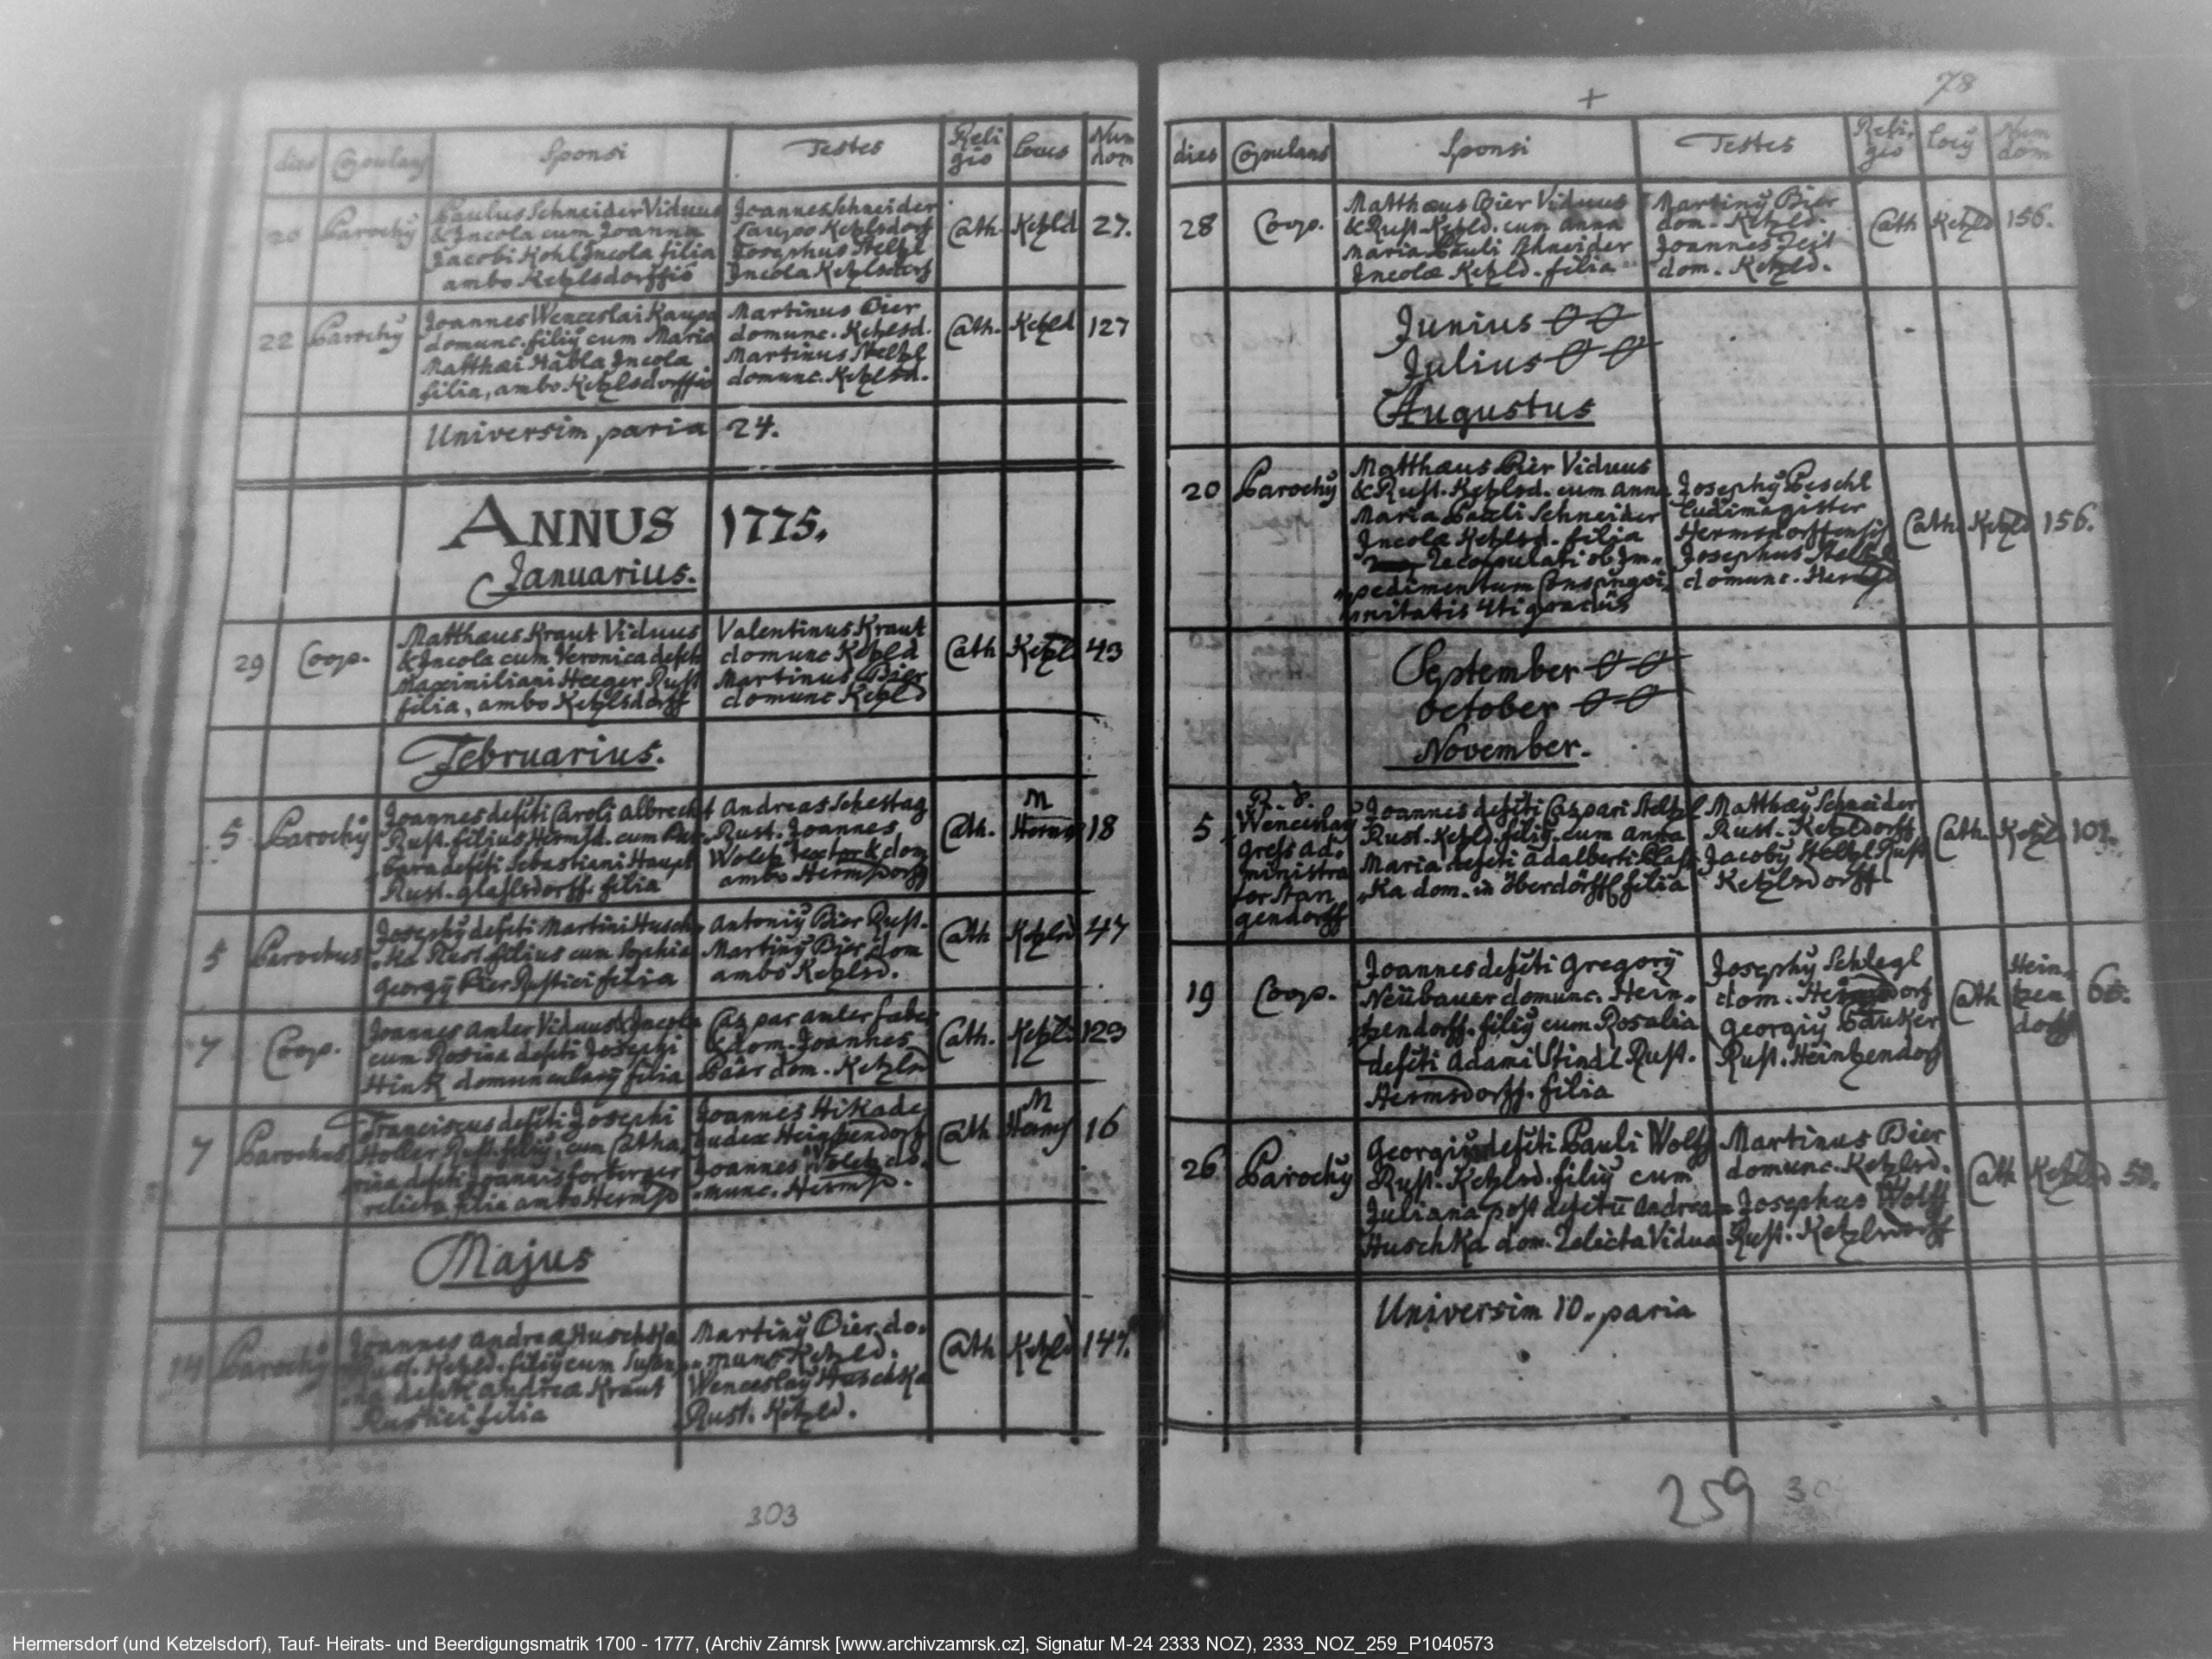 dies Copulans Sponsi Testes Religio Locus Num dom
20 Parochÿ Cath. Ketzld 27.
Paulus Schneider Viduus
& Incola cum Joanna
Jacobi Kohl Incola filia
ambo Ketzlsdorffio
Joannes Schneider
Ketzlsdorf
Josephus Steltzl
Incola Ketzlsdorf
22 Parochÿ Cath. Ketzld 127
Joannes Wenceslai Kaupa
domunc. filiÿ cum Maria
Matthæi Habla Incola
filia, ambo Ketzlsdorffio
Martinus Bier
domunc. Ketzlsd.
Martinus Steltzl
domunc. Ketzlsd.
Universim paria 24.
ANNUS 1775.
Januarius.
29 Coop. Cath Ketzl 43
Matthæus Kraut Viduus
& Incola cum Veronica defcti
Maximiliani Heeger Rust
filia, ambo Ketzlsdorff
Valentinus Kraut
domunc Ketzld
Martinus Bier
domunc Ketzld
Februarius.
5 Parochÿ Cath. M Herms 18
Joannes defcti Caroli Albrecht
Rust. filius Hermsd. cum Bar
bara defcti Sebastiani Haupt
Rust. Glaslsdorff. filia
Andreas Schestag
Rust. Joannes
Wolck Textor & dom
ambo Hermsdorff
5 Parochus Cath Ketzlsd 47
Josephÿ defcti Martini Husch
Ka Rust filius cum Sophia
Georgÿ Bier Rustici filia
Antoniÿ Bier Rust.
Martinÿ Bier dom
ambo Ketzlsd.
7 Coop. Cath. Ketzl 129
Joannes Anler Viduus & Incola
cum Rosina defcti Josephi
Hink domuncularÿ filia
Caspar Anler faber
& dom. Joannes
Bäar dom. Ketzlsd
7 Parochus Cath M Herms 16
Franciscus defcti Josephi
Holler Rust. filiÿ, cum Catha
rina defcti Joannis forberger
relicta filia ambo Hermsd
Joannes Hikade
Judex Heintzendorf
Joannes Wolck do
munc. Hermsd.
Majus
14 Parochÿ Cath Ketzld 147.
Joannes Andreæ Huschka
Rust. Ketzld. filiÿ cum Susan
na defcti Andreæ Kraut
Rustici filia
Martinÿ Bier do
munc Ketzld.
Wenceslaÿ Huschka
Rust. Ketzld.
303
+ 78
dies Copulans Sponsi Testes Religio Locÿ Num dom
28 Coop. Cath Ketzld 156.
Matthæus Bier Viduus
& Rust. Ketzld. cum Anna
Maria Pauli Schneider
Incolæ Ketzld. filia
Martinÿ Bier
dom. Ketzld.
Joannes Zeit
dom. Ketzld.
Junius
Julius
Augustus
20 Parochÿ Cath. Ketzld 156.
Matthæus Bier Viduus
& Rust. Ketzlsd. cum Anna
Maria Pauli Schneider
Incolæ Ketzlsd. filia
recopulati ob Im
pedimentum Consangvi
nitatis 4ti gradûs
Josephÿ Peschl
Ludimagister
Hermsdorffensis
Josephus Steltzl
domunc. Hermsd
September
October
November.
5 Cath. Ketzl 101.
R. d.
Wenceslaÿ
Gress ad
ministra
tor Stan
gendorff
Joannes defcti Caspari Steltzl
Rust. Ketzld. filiÿ cum Anna
Maria defcti Adalberti Blasch
Ka dom. in Überdörffl filia
Matthæÿ Schneider
Rust. Ketzldorff
Jacobÿ Steltzl Rust
Ketzlsdorff
19 Coop. Cath Heintzen dorff
Joannes defcti Gregorÿ
Neübauer domunc. Hein
tzendorff. filiÿ cum Rosalia
defcti Adami Stindl Rust.
Hermsdorff. filia
Josephÿ Schlegl
dom. Hermsdorf
Georgiÿ Bauker
Rust. Heintzendorf
26 Parochÿ Cath Ketzlsd 50.
Georgiÿ defcti Pauli Wolff
Rust. Ketzlsd. filiÿ cum
Juliana post defctũ Andrea
Huschka dom. relicta Vidua
Martinus Bier
domunc. Ketzlsd.
Josephus Wolff
Rust. Ketzlsdorff
Universim 10. paria
259 30
Hermersdorf (und Ketzelsdorf), Tauf- Heirats- und Beerdigungsmatrik 1700 - 1777, (Archiv Zámrsk [www.archivzamrsk.cz], Signatur M-24 2333 NOZ), 2333_NOZ_259_P1040573